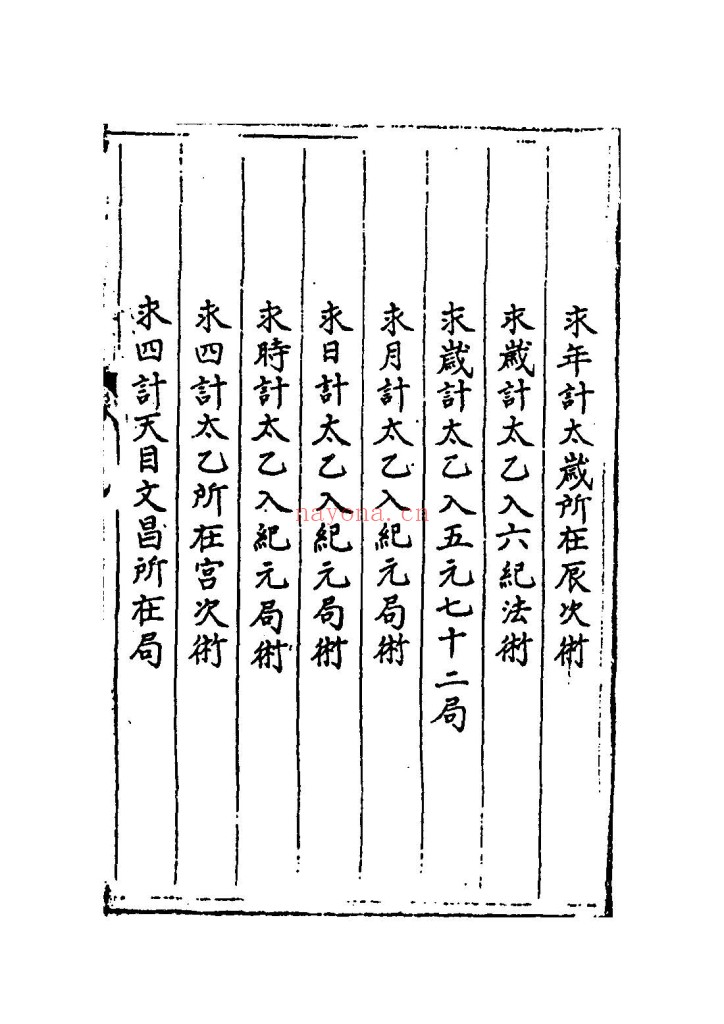 求年計太歲所在辰次術
求歲計太乙入六紀法術
求歲計太乙入五元七十二局
求月計太乙入紀元局術
求日計太乙入紀元局術
求時計太乙入紀元局術
求四計太乙所在宮次術
求四計天目文昌所在局
nayona.cn